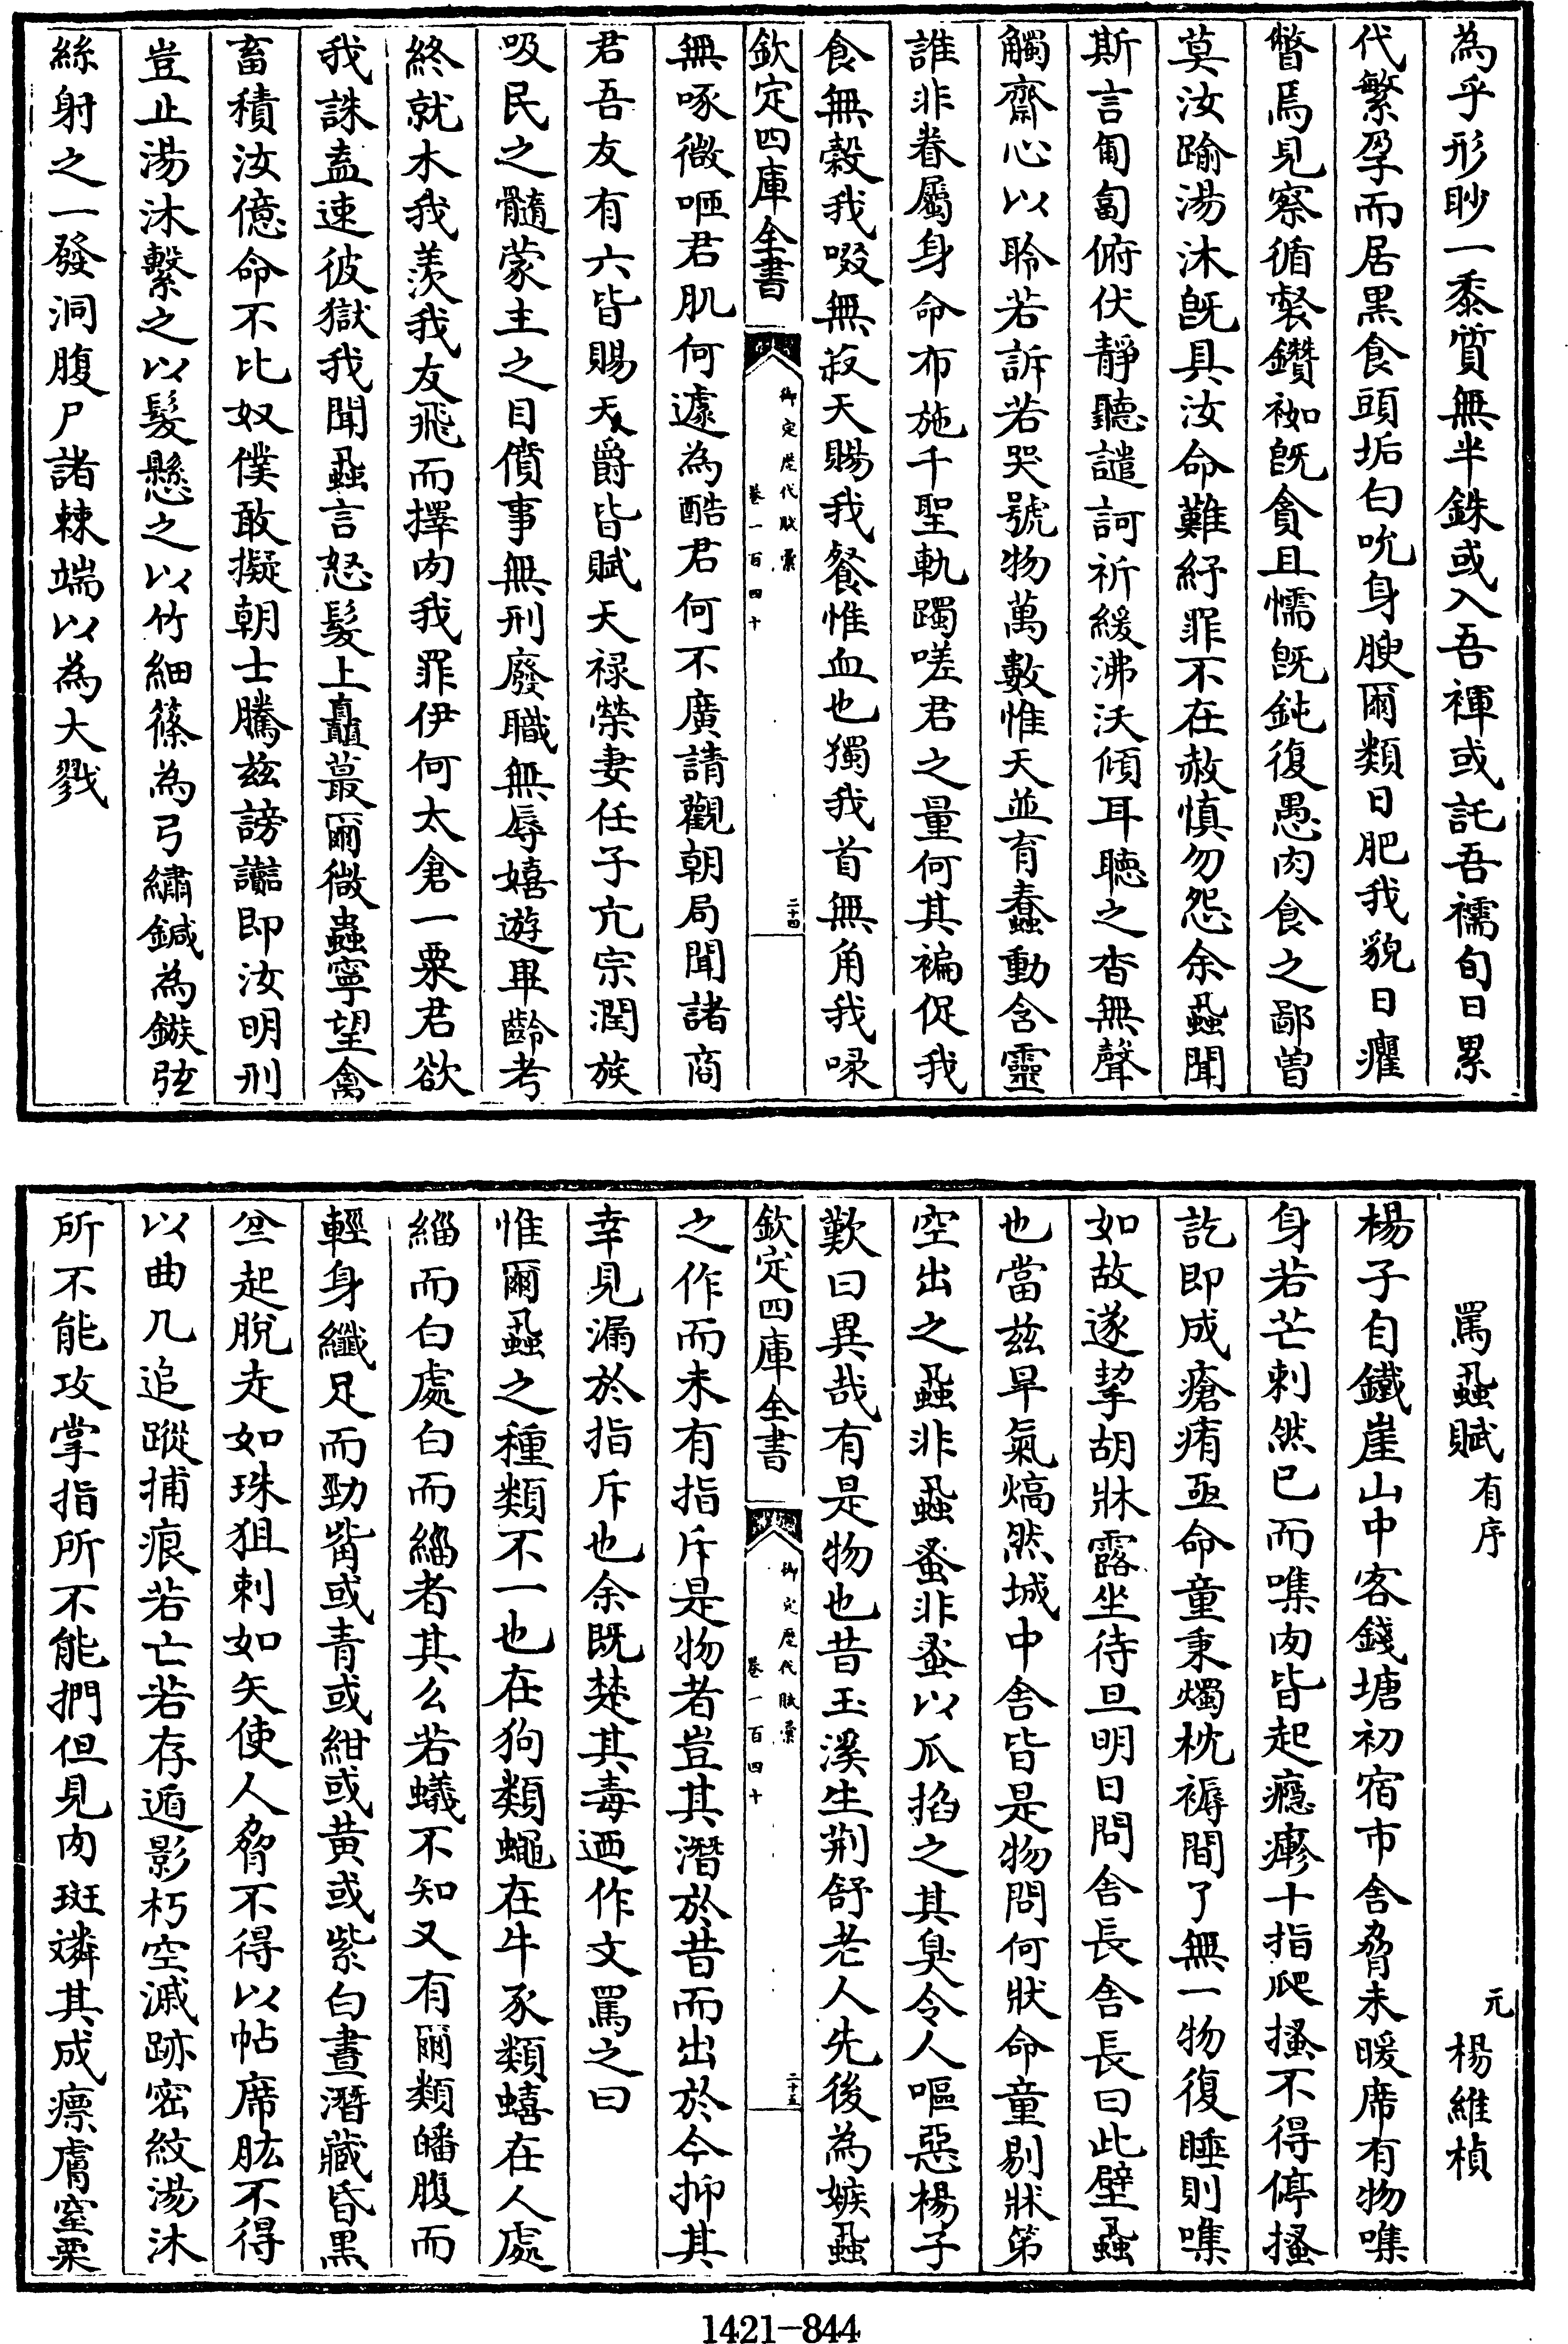 為乎形眇一黍質無半銖或入吾褌或託吾襦旬日累
代繁孕而居黑食頭垢白吮身腴爾類日肥我貌日癯
瞥焉見察循製鑽袽既貪且懦既鈍復愚肉食之鄙曽
莫汝踰湯沐旣具汝命難紓罪不在赦慎勿怨余蝨聞
斯言匍匐俯伏靜聽譴訶祈緩沸沃傾耳聴之杳無聲
觸齋心以聆若訴若哭號物萬數惟天並育蠢動含靈
誰非眷屬身命布施千聖軌躅嗟君之量何其褊促我
食無穀我啜無菽天賜我餐惟血也獨我首無角我㖨
欽定四庫全書 御定歴代賦彙 卷一百四十 二十四
無啄微咂君肌何遽為酷君何不廣請觀朝局聞諸商
君吾友有六皆賜天爵皆賦天禄榮妻任子亢宗潤族
吸民之髓蒙主之目僨事無刑廢職無辱嬉遊畢齡考
終就木我羨我友飛而擇肉我罪伊何太倉一粟君欲
我誅盍速彼獄我聞蝨言怒髮上矗蕞爾微蟲寧望禽
畜積汝億命不比奴僕敢擬朝士騰茲謗讟即汝明刑
豈止湯沐繫之以髮懸之以竹細篠為弓繡鍼為鏃弦
絲射之一發洞腹尸諸棘端以為大戮
罵蝨賦有序 元 楊維楨
楊子自鐵崖山中客錢塘初宿市舍脅未暖席有物噍
身若芒刺然已而噍肉皆起癮瘮十指爬搔不得停搔
訖即成瘡痏亟命童秉燭枕褥間了無一物復睡則噍
如故遂挈胡牀露坐待旦明日問舍長舍長曰此壁蝨
也當茲旱氣熇然城中舍皆是物問何狀命童剔牀第
空出之蝨非蝨蚤非蚤以爪掐之其臭令人嘔惡楊子
歎曰異哉有是物也昔玉溪生荆舒老人先後為嫉蝨
欽定四庫全書 御定歴代賦彙 卷一百四十 二十五
之作而未有指斥是物者豈其潛於昔而出於今抑其
幸見漏於指斥也余既楚其毒迺作文罵之曰
惟爾蝨之種類不一也在狗類蠅在牛豕類蟢在人處
緇而白處白而緇者其么若蟻不知又有爾類皤腹而
輕身纖足而勁觜或青或紺或黄或紫白晝潛藏昏黑
坌起脫走如珠狙刺如矢使人脅不得以帖席肱不得
以曲几追蹤捕痕若亡若存遁影朽空滅跡密紋湯沐
所不能攻掌指所不能捫但見肉斑㷠其成瘭膚窒粟
1421-844